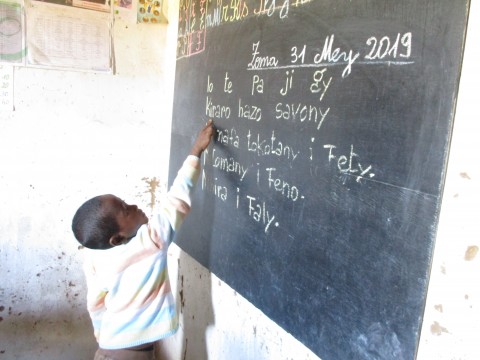 Zoma 31 Mey 2019
lo te pa ji gy
Kinaro hazo savony
nafa tokotany i Fety.
omany i Feno.
ira i Faly.